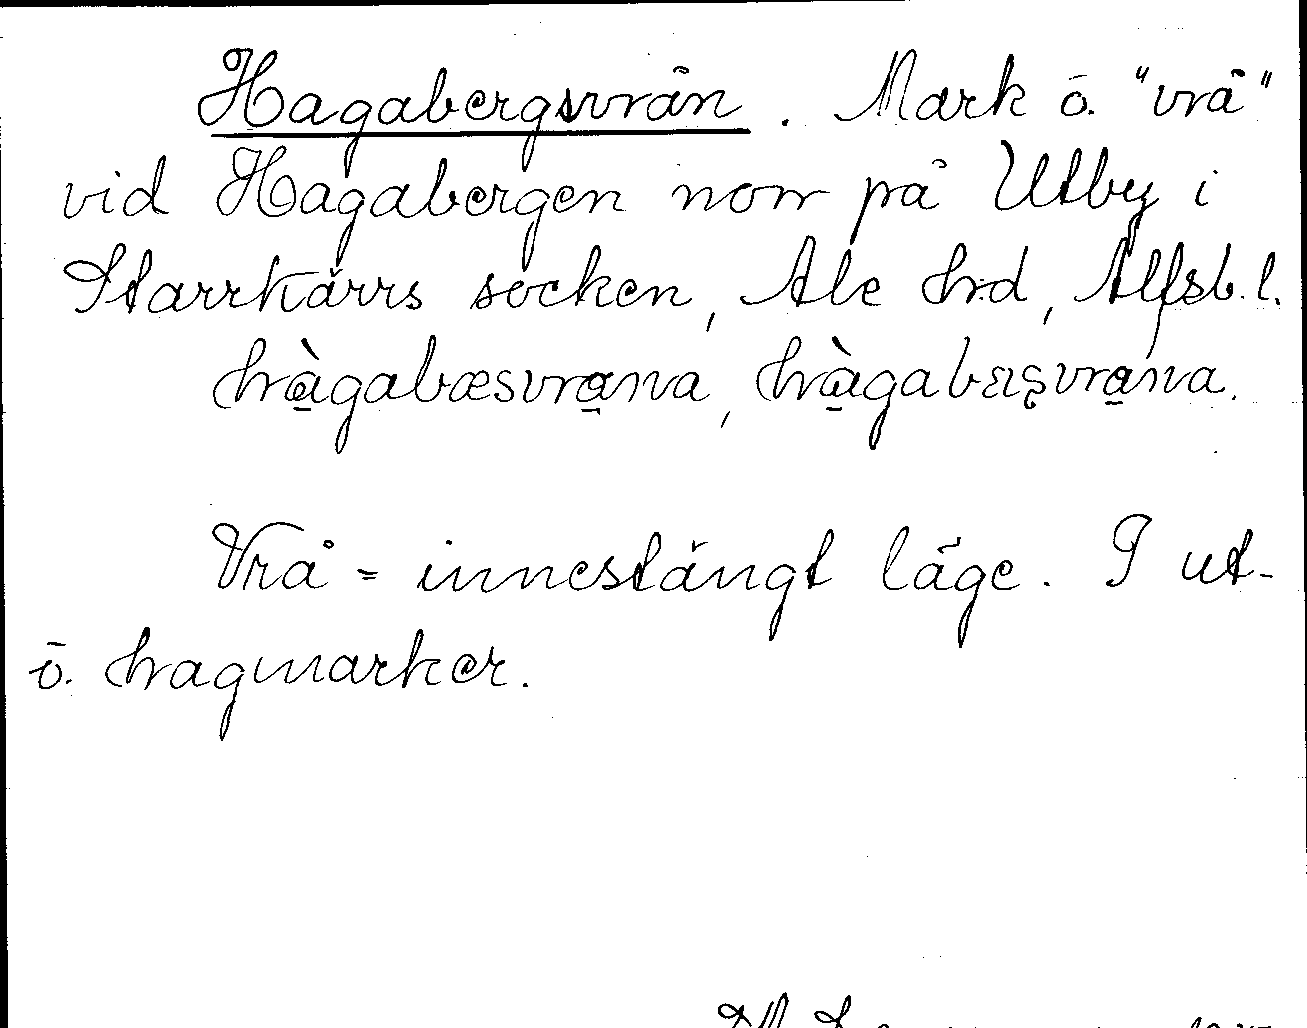 Hagabergsvrån. Mark ö. "vrå"
vid Hagabergen norr på Utby i
Starrkärrs socken, Ale hd, Älfsb. l.
hàgabæsvrana, hàgabæsvrana.
Vrå = innestängt läge. I ut-
ö. hagmarker.